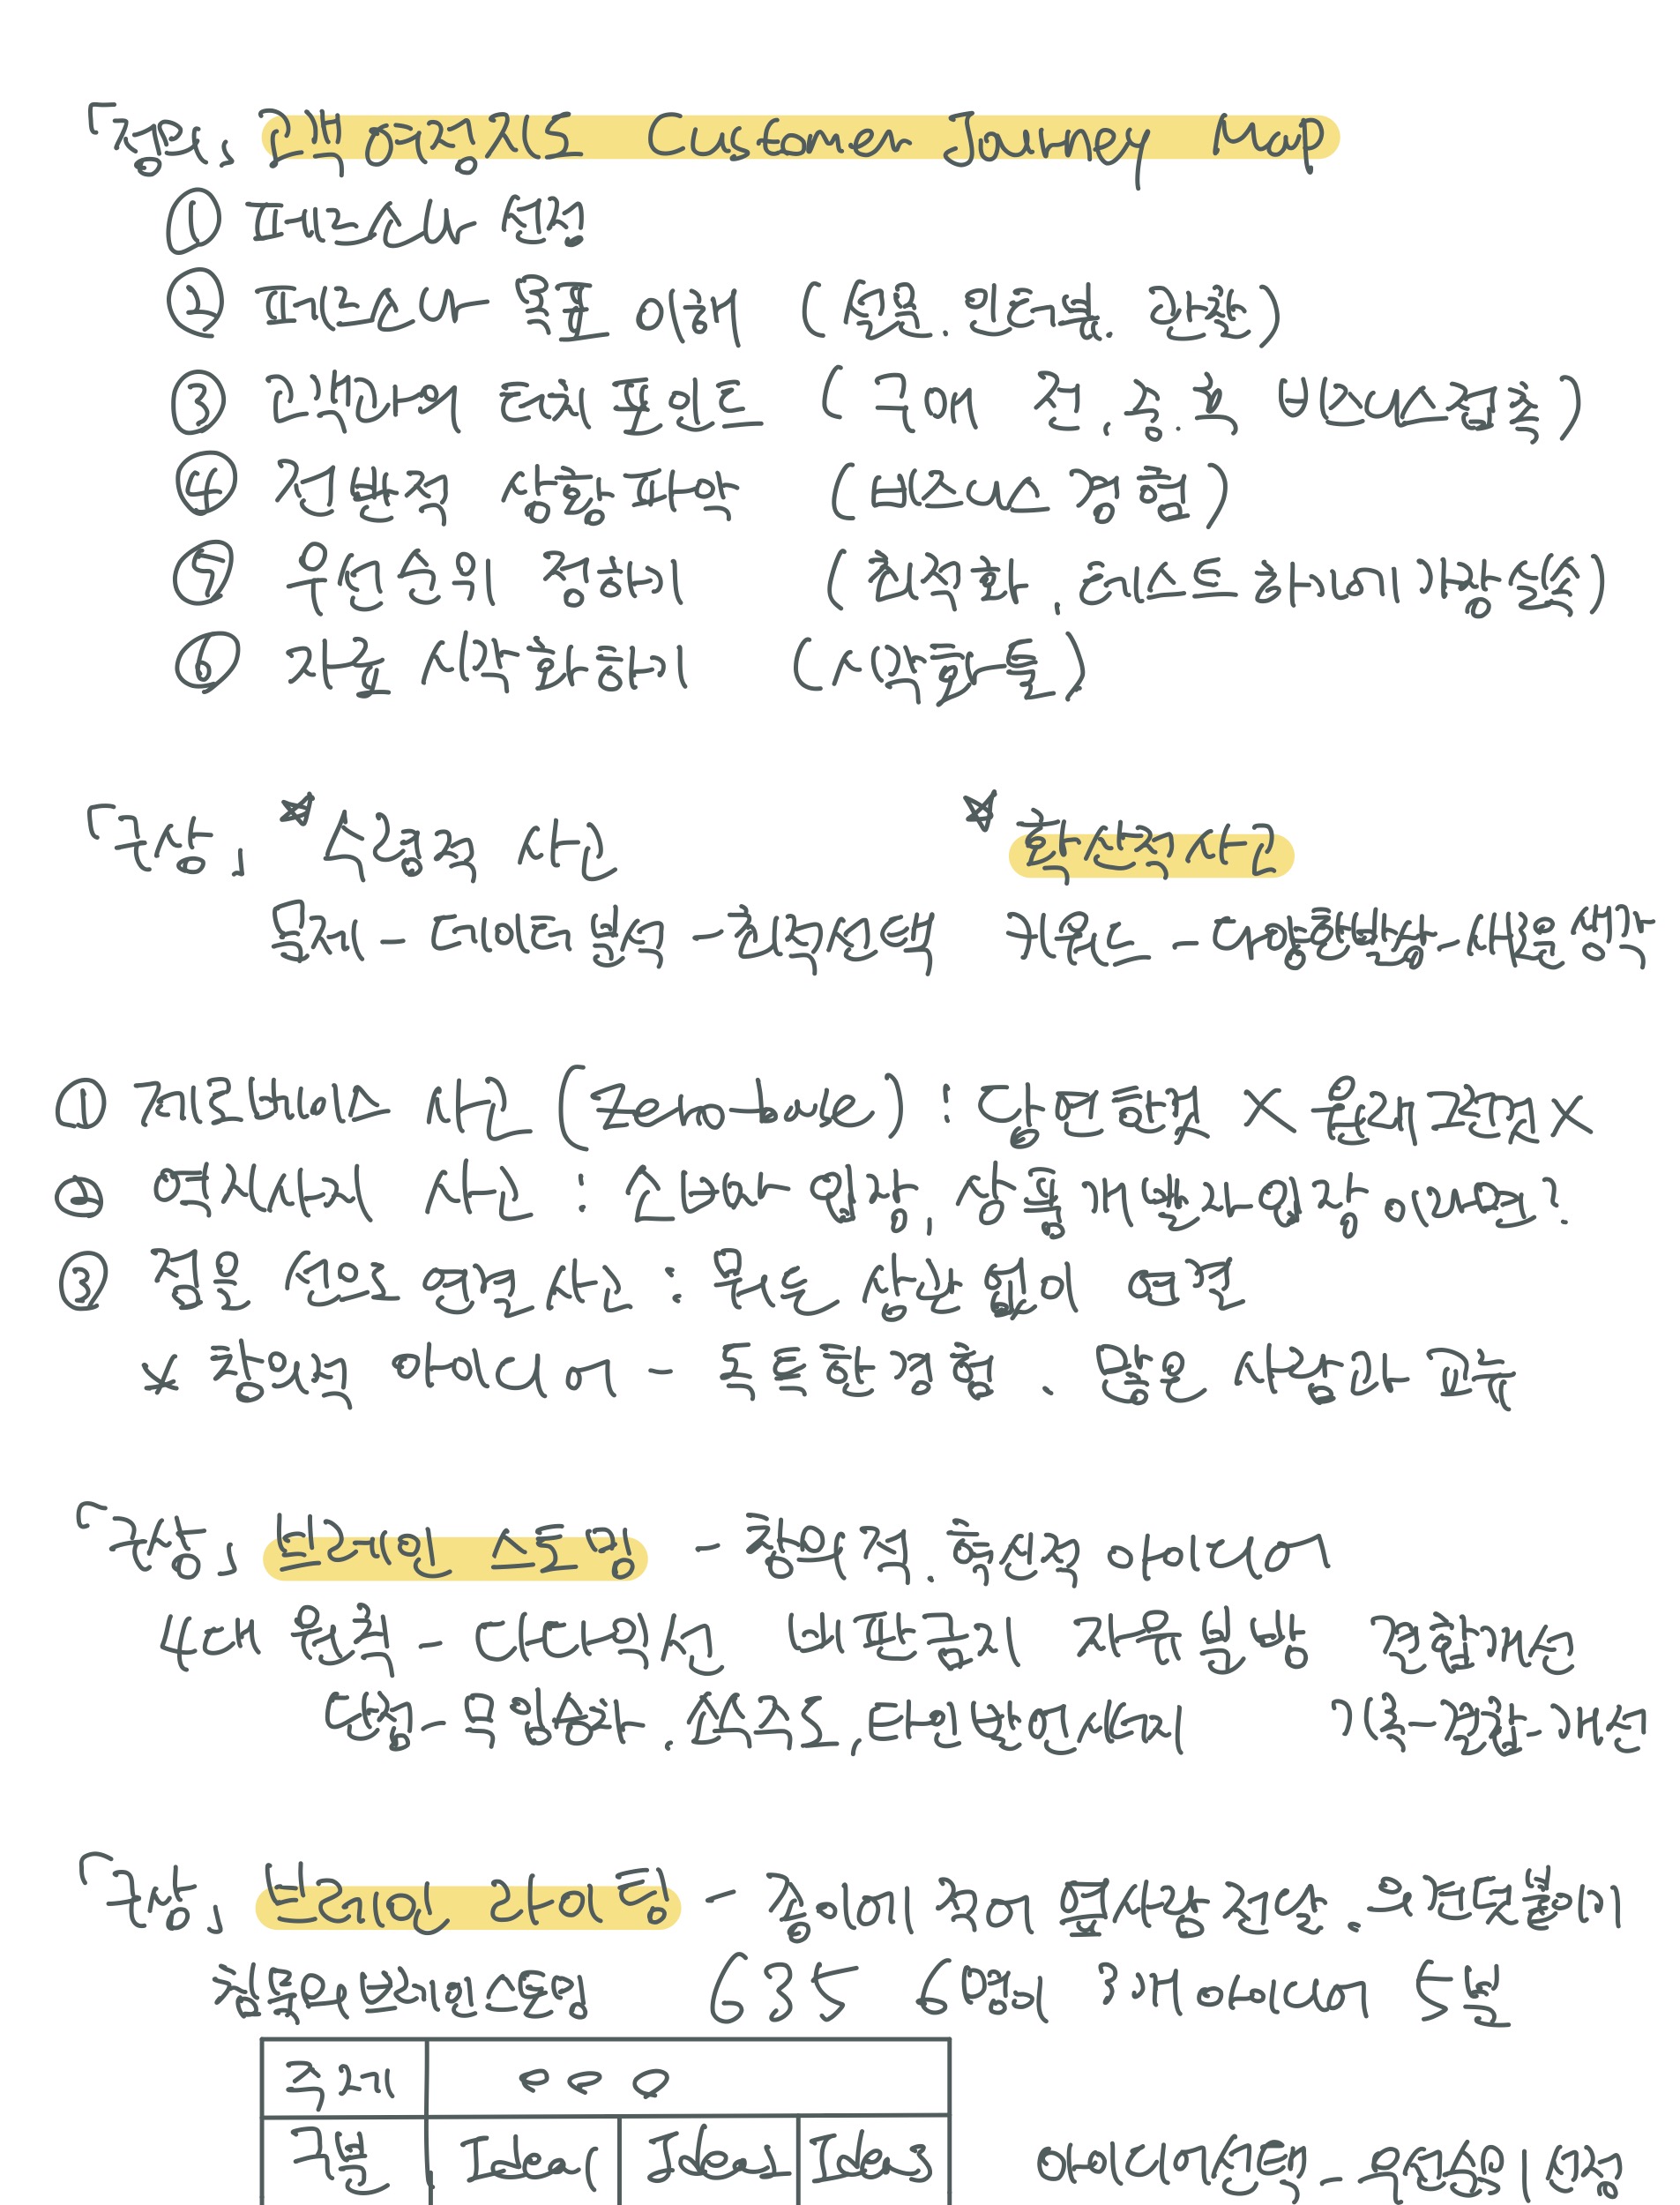 「정의」 고객여정지도 Customer Journey Map
① 페르소나 선정
② 페르소나 목표 이해 (설문. 인터뷰. 관찰)
③ 고객과의 터치포인트 (구매 전, 중. 후 비즈니스접촉)
④ 전반적 상황파악 (비즈니스 경험)
⑤ 우선순위 정하기 (최적화, 테스트
⑥ 자료 시각화하기 (시각화 툴)
「구상」 ☆ 수렴적 사고 ☆ 확산적사고
문제 - 데이터 분석 - 최적선택 키워드 - 다양한발상 - 새로운생각
① 제로베이스 사고 (Zero-base) : 당연한것 X 원래그런거X
② 역지사지 사고 : 소비자 입장, 상품개발자입장 이라면?
③ 점을 선으로 연결 사고 : 뭐든 상관 없이 연결
※ 창의적 아이디어 - 독특한경험. 많은 사람과 교류
「구상」 브레인 스토밍 - 창의적. 혁신적 아이디어
4대 원칙 - 다다익선 비판금지 자유분방 결합개선
단점 - 무임승차. 소수주도, 타인발언 기록-결합-개선
「구상」 브레인 라이팅 - 종이에 적어 옆사람전달. 의견덧붙이기
침묵의브레인스토밍 635 6명이 3개아이디어 5분
주제 ○○○
구분 Idea1 Idea2 Idea3 아이디어선택 - 우선순위선정